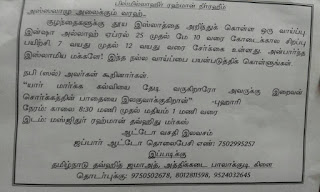 பிஸ்மில்லாஹிர் ரஹ்மான் நிர்ரஹீம்
அஸ்ஸலாமு அலைக்கும் வரஹ்-
குழந்தைகளுக்கு தூய இஸ்லாத்தை அறிந்துக் கொள்ள ஒரு வாய்ப்பு
இன்ஷா அல்லாஹ் ஏப்ரல் 25 முதல் மே 10 வரை கோடைக்கால சிறப்பு
பயிற்சி. 7 வயது முதல் 12 வயது வரை சேர்க்கை உள்ளது. அன்பார்ந்த
இஸ்லாமிய மக்களே! இந்த நல்ல வாய்ப்பை பயன்படுத்திக் கொள்ளுங்கள்.
நபி (ஸல்) அவர்கள் கூறினார்கள்.
"யார் மார்க்க கல்வியை தேடி வருகிறாரோ அவருக்கு இறைவன்
சொர்க்கத்தின் பாதையை இலகுவாக்குகிறான்" -புஹாரி
நேரம்: காலை 8:30 மணி முதல் மதியம் 1 மணி வரை
இடம்: மஸ்ஜிதுர் ரஹ்மான் தவ்ஹீது மர்கஸ்
ஆட்டோ வசதி இலவசம்
ஜப்பார் ஆட்டோ தொலைபேசி எண்: 7502995257
இப்படிக்கு
தமிழ்நாடு தவ்ஹித் ஜமாஅத், அத்திக்கடை, பாலாக்குடி, கிளை
தொடர்புக்கு: 9750502678, 8012811598, 9524032645